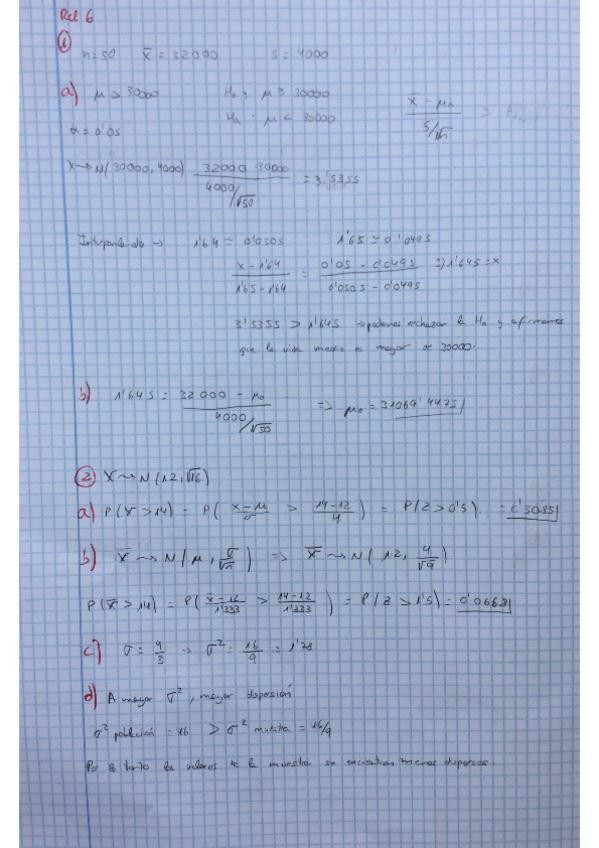 Rel 6
①
n=50 x̄ = 32000 s = 4000
a) μ > 30000 H₀: μ ≥ 30000
Hₐ: μ < 30000
x̄ - μ₀ / s/√n >
α = 0'05
X → N(30000, 4000) 32000 30000 / 4000/√50 = 3'5355
Interpolando → 1'64 = 0'0505 1'65 = 0'0495
x - 1'64 / 1'65 - 1'64 = 0'05 - 0'0495 / 0'0505 - 0'0495 ⇒ 1'645 = x
3'5355 > 1'645 → podemos rechazar la H₀ y afirmamos
que la vida media es mayor de 30000.
b) 1'645 = 32000 - μ₀ / 4000/√50 ⇒ μ₀ = 31069'4475
② X → N(12, √16)
a) P(X > 14) = P( x-μ / σ > 14-12 / 4 ) = P(Z > 0'5) = 0'3085
b) X̄ → N(μ, σ/√n) ⇒ X̄ → N(12, 4/√9)
P(X̄ > 14) = P( x̄-12 / 1'333 > 14-12 / 1'333 ) = P(Z > 1'5) = 0'0668
c) σ = 4/3 → σ² = 16/9 = 1'78
d) A mayor σ², mayor dispersión
σ² población = 16 > σ² muestra = 16/9
Por lo tanto los valores de la muestra se encuentran menos dispersos.